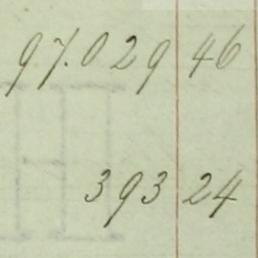 97.029 46
393 24